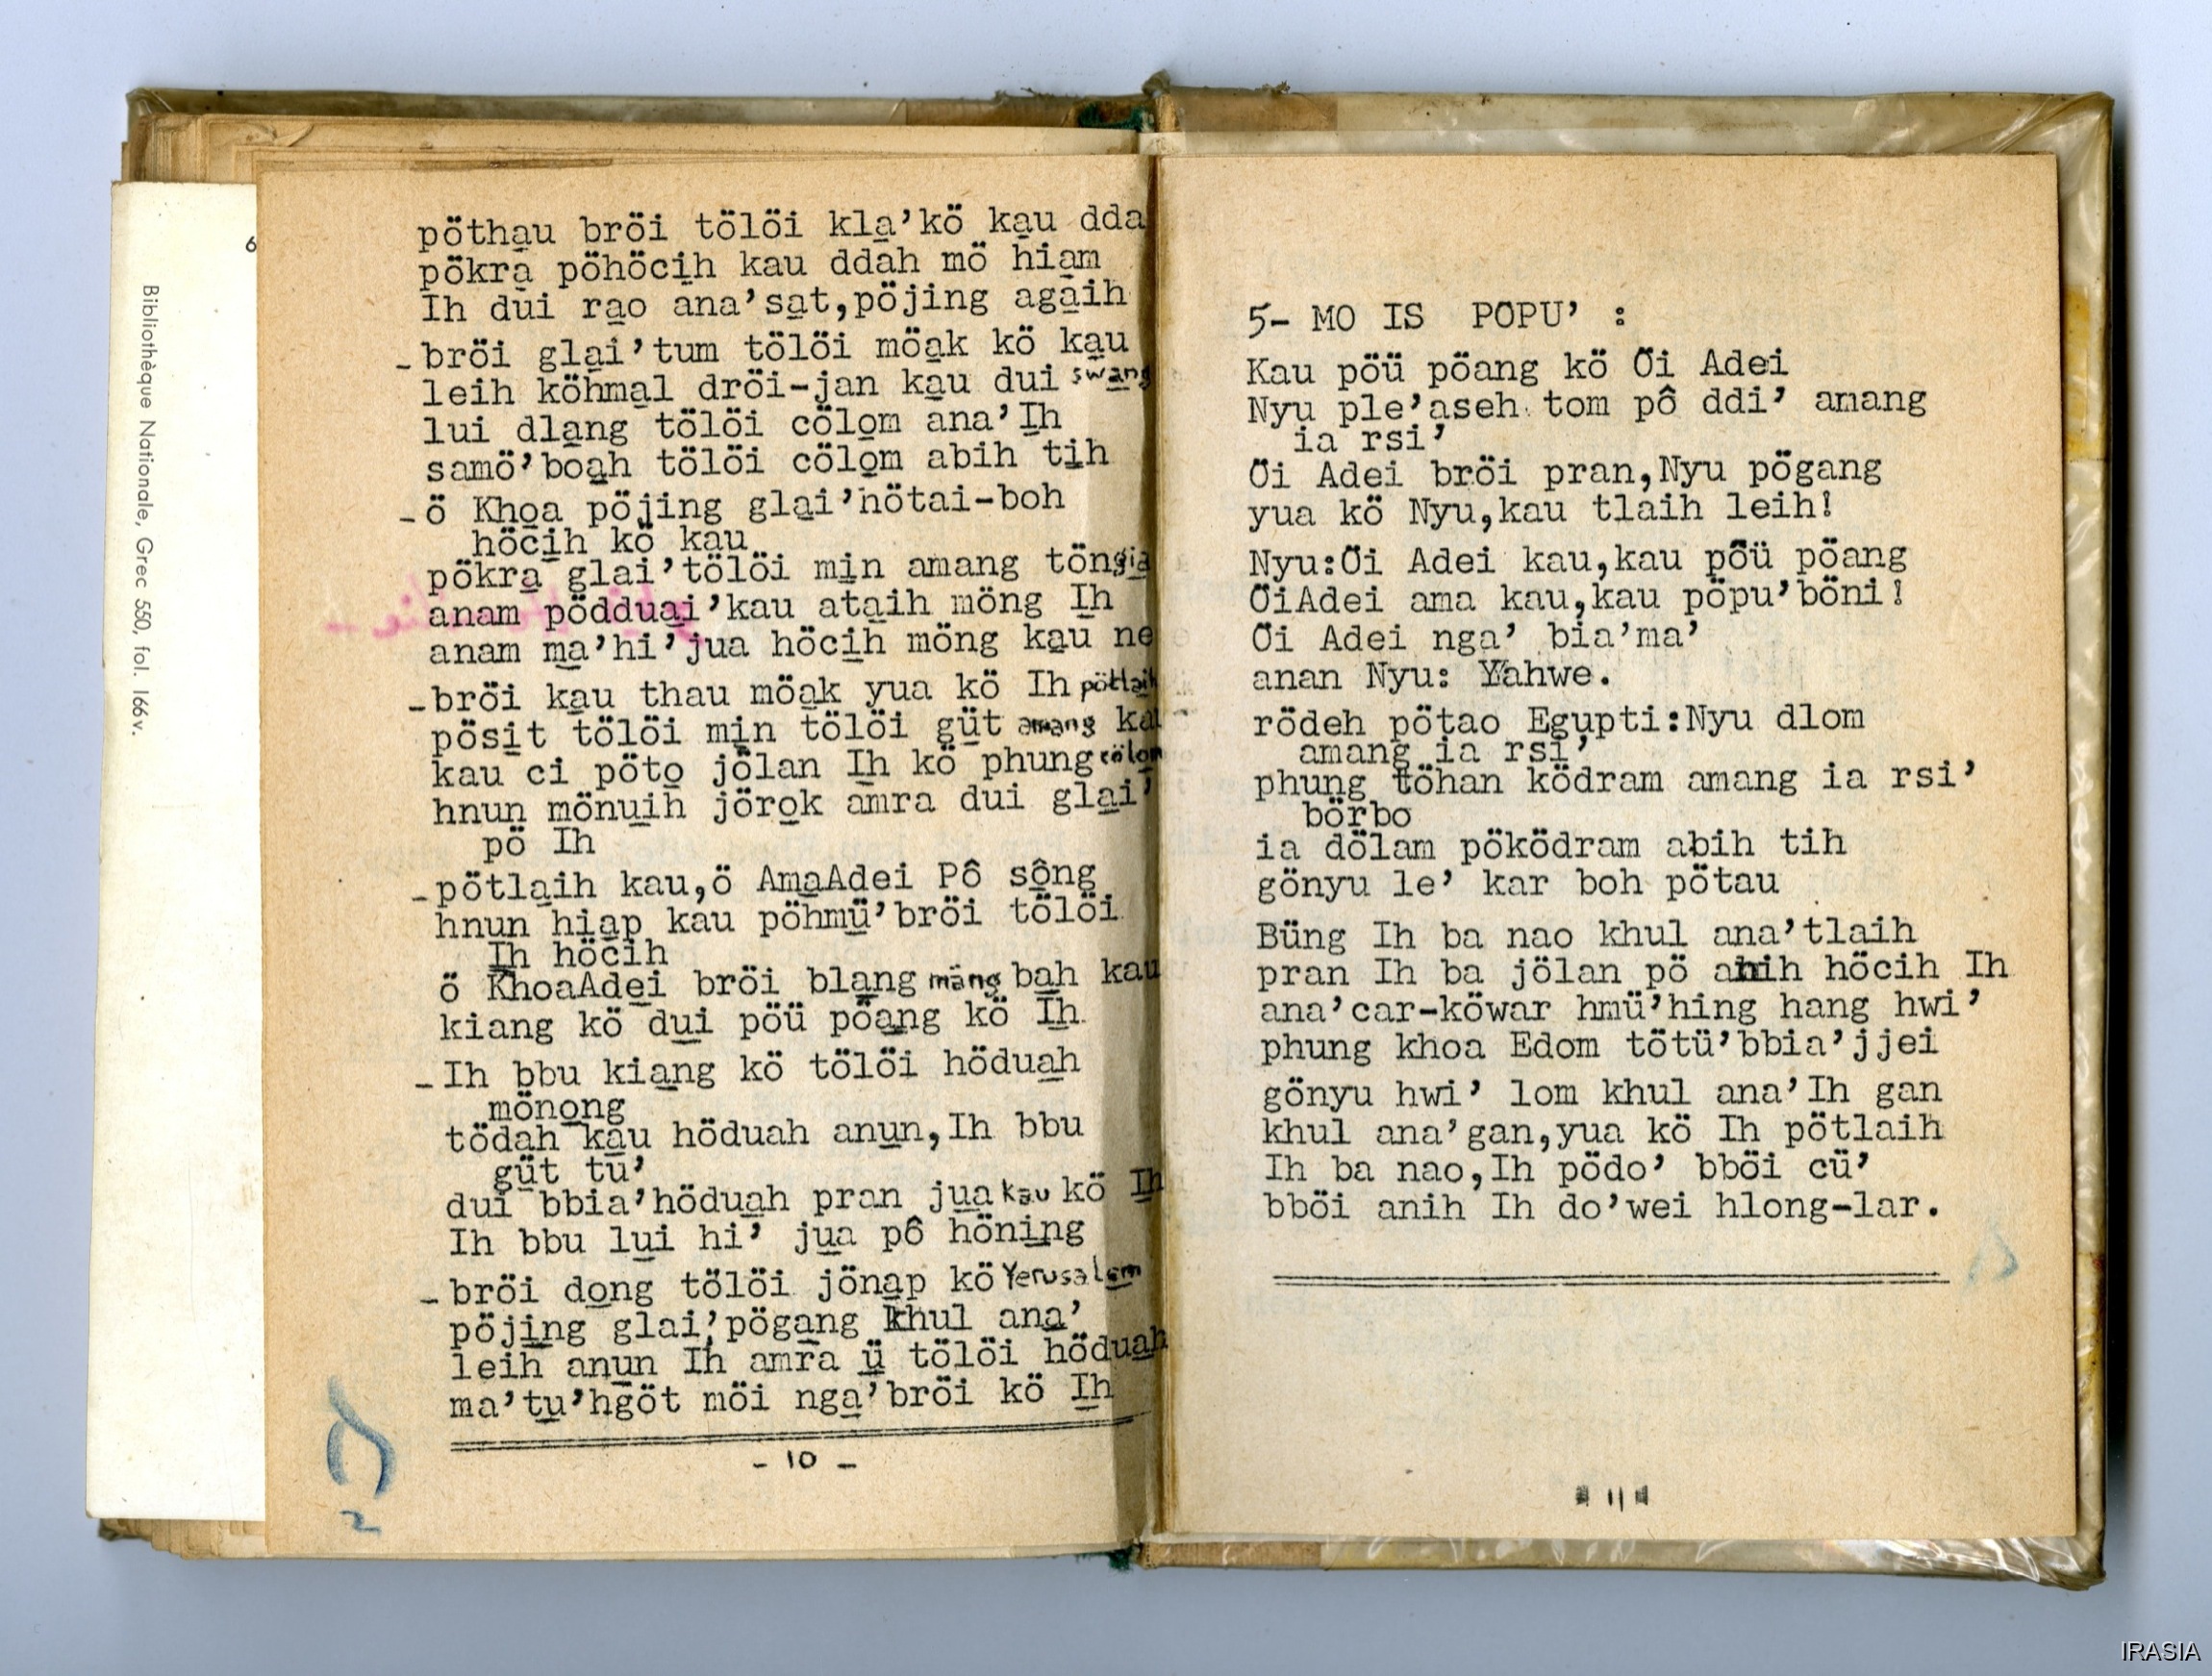 6
Bibliothèque Nationale, Grec 550, fol. 166v.
pöthau bröi tölöi kla’kö kau dda
pökra pöhöcih kau ddah mö hiam
Ih dui rao ana’sat,pöjing agaih
-bröi glai’tum tölöi möak kö kau
leih köhmal dröi-jan kau dui swang
lui dlang tölöi cölom ana’Ih
samö’boah tölöi cölom abih tih
-ö Khoa pöjing glai’hötai-boh
höcih kö kau
pökra glai’tölöi min amang töngia
anam pödduai’kau ataih möng Ih
anam ma’hi’jua höcih möng kau ne
-bröi kau thau möak yua kö Ih pötlaih
pösit tölöi min tölöi güt amang ka
kau ci pöto jölan Ih kö phung cölom
hnun mönuih jörok amra dui glai’
pö Ih
-pötlaih kau,ö AmaAdei Pô sông
hnun hiap kau pöhmü’bröi tölöi
Ih höcih
ö KhoaAdei bröi blang mäng bah kau
kiang kö dui pöü pöang kö Ih
-Ih bbu kiang kö tölöi höduah
mönong
tödah kau höduah anun,Ih bbu
güt tu’
dui bbia’höduah pran jua kau kö Ih
Ih bbu lui hi’ jua pô höning
-bröi dong tölöi jönap kö Yerusalem
pöjing glai’pögang khul ana’
leih anun Ih amra ü tölöi höduah
ma’tu’hgöt möi nga’bröi kö Ih
- 10 -
5- MO IS PÖPU’ :
Kau pöü pöang kö Öi Adei
Nyu ple’aseh tom pô ddi’ amang
ia rsi’
Öi Adei bröi pran,Nyu pögang
yua kö Nyu,kau tlaih leih!
Nyu:Öi Adei kau,kau pöü pöang
ÖiAdei ama kau,kau pöpu’böni!
Öi Adei nga’ bia’ma’
anan Nyu: Yahwe.
rödeh pötao Egupti:Nyu dlom
amang ia rsi’
phung töhan ködram amang ia rsi’
börbo
ia dölam pöködram abih tih
gönyu le’ kar boh pötau
Büng Ih ba nao khul ana’tlaih
pran Ih ba jölan pö anih höcih Ih
ana’car-köwar hmü’hing hang hwi’
phung khoa Edom tötü’bbia’jjei
gönyu hwi’ lom khul ana’Ih gan
khul ana’gan,yua kö Ih pötlaih
Ih ba nao,Ih pödo’ bböi cü’
bböi anih Ih do’wei hlong-lar.
11
IRASIA